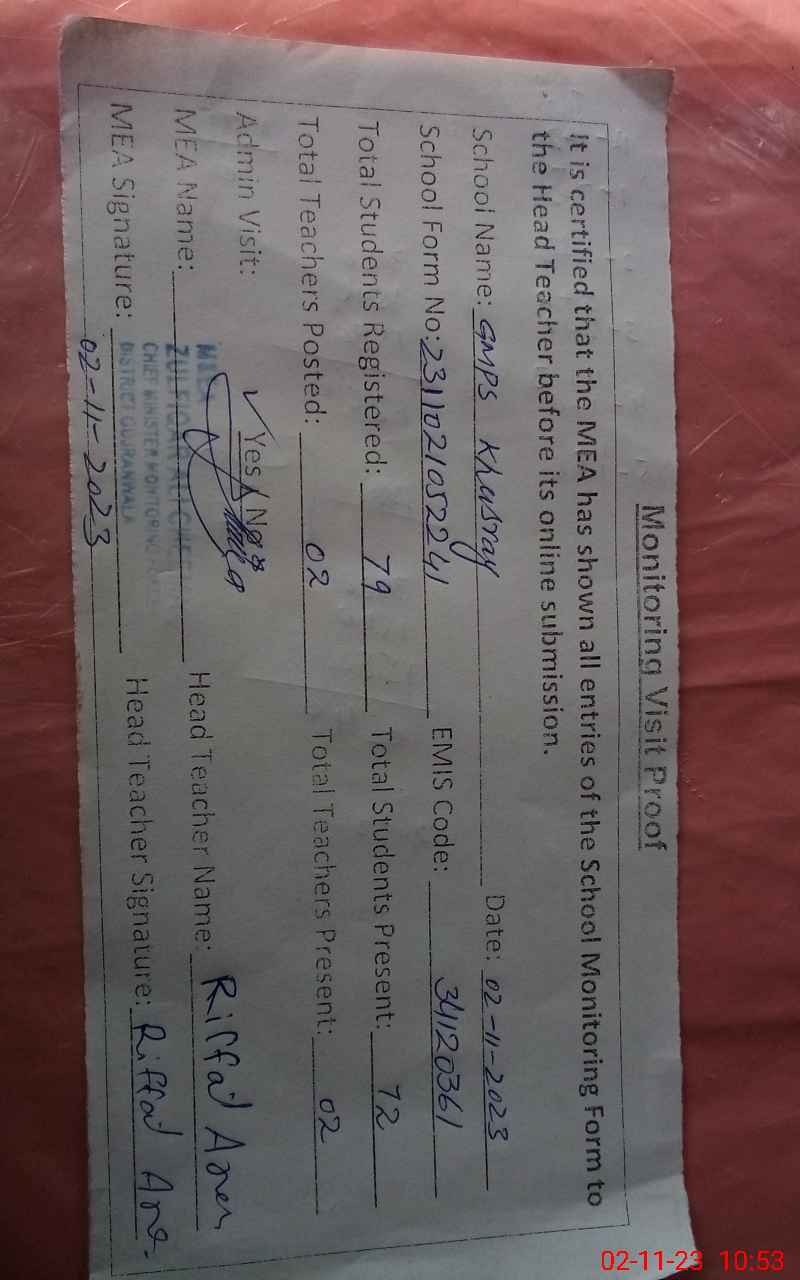 Monitoring Visit Proof
It is certified that the MEA has shown all entries of the School Monitoring Form to
the Head Teacher before its online submission.
School Name: GMPS Khusray Date: 02-11-2023
School Form No: 2311021052241 EMIS Code: 34120361
Total Students Registered: 79 Total Students Present: 72
Total Teachers Posted: 02 Total Teachers Present: 02
Admin Visit: ✓ Yes / No
MEA Name: Head Teacher Name: Riffat
MEA Signature: Head Teacher Signature: Riffat
MEA
ZULFIQAR ALI
CHIEF MINISTER MONITORING
DISTRICT GUJRANWALA
02-11-2023
02-11-23 10:53